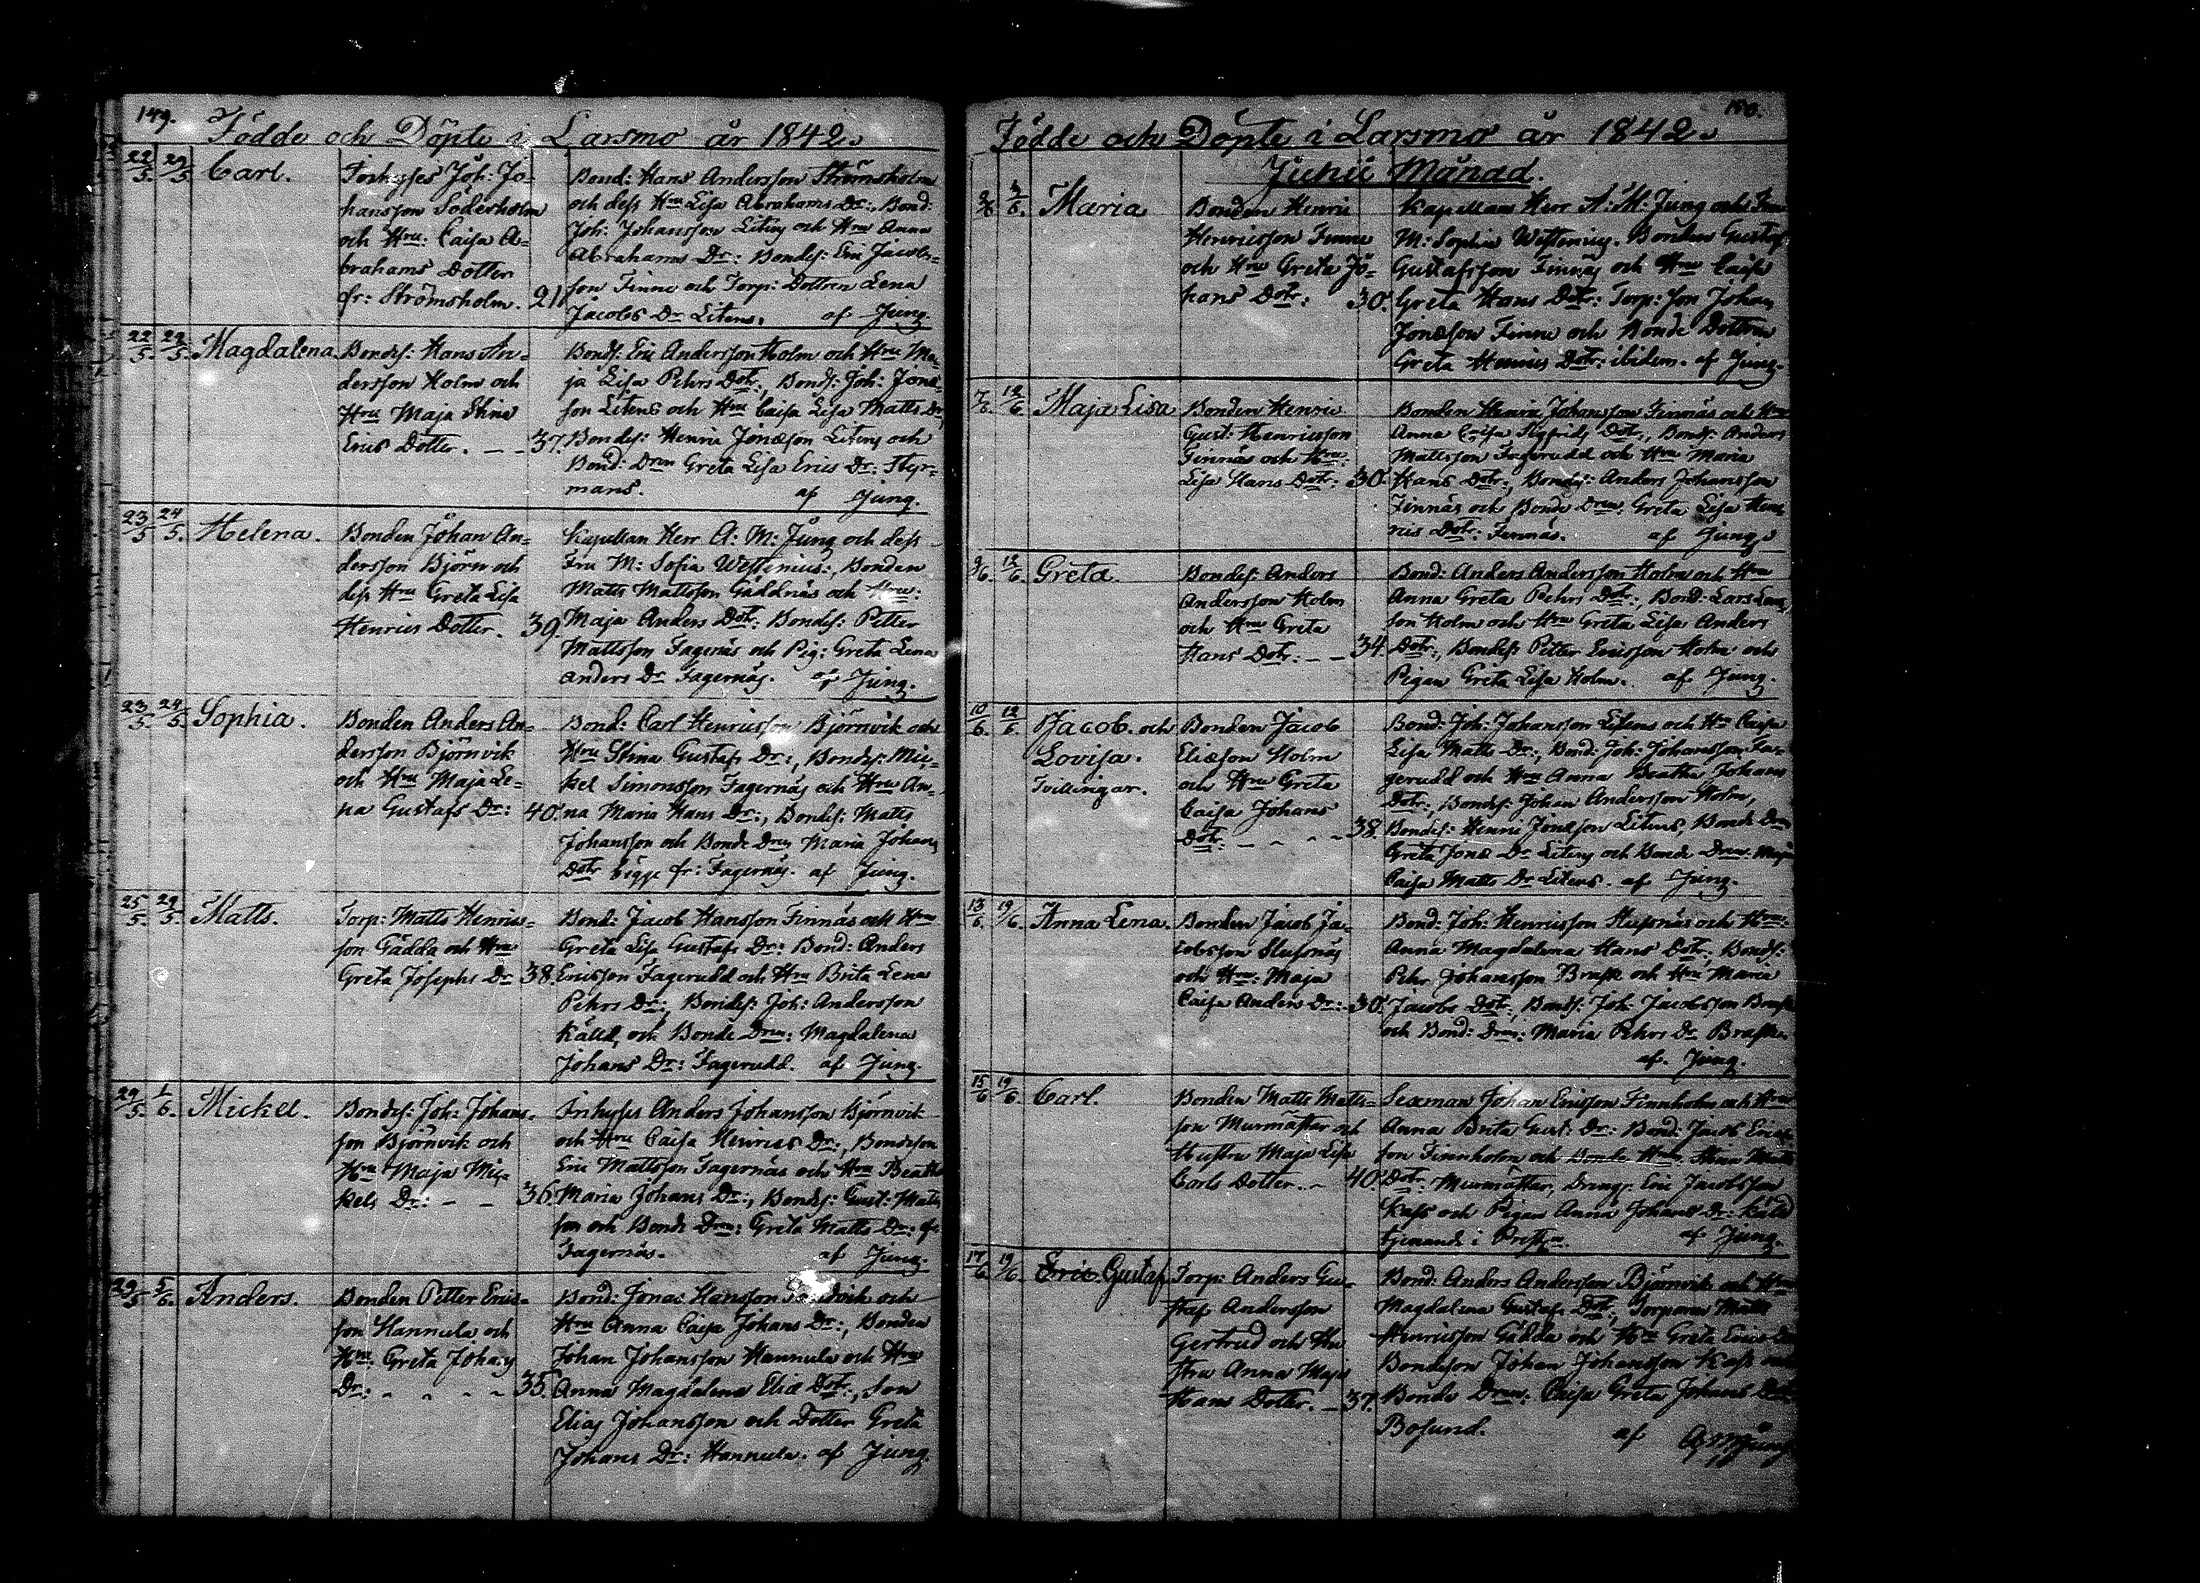 149.
Födde och Döpte i Larsmo år 1842.
22/5. 29/5 Carl.
Inhyses Joh: Jo-
hansson Söderholm
och Hru: Caisa A-
brahams Dotter
fr: Strömsholm. 21.
Bond: Hans Andersson Strömsholm
och dess Hru Lisa Abrahams Dr:, Bond:
Joh: Johansson Litens och Hru Anna
Abrahams Dr: Bondes: Eric Jacobs-
son Finne och Torp: Dottren Lena
Jacobs Dr Litens. af Jung.
22/5. 29/5. Magdalena.
Bondes: Hans An-
dersson Holm och
Hru Maja Stina
Erics Dotter. — - 37.
Bonds: Eric Andersson Holm och Hru Ma-
ja Lisa Pehrs Dotr:, Bonds: Joh: Jona-
son Litens och Hru Caisa Lisa Matts Dr,
Bondes: Henric Jonæson Litens och
Bond: Dren Greta Lisa Erics Dr: Styr-
mans. af Jung.
23/5 24/5. Helena.
Bonden Johan An-
dersson Björn och
dess Hru Greta Lisa
Henrics Dotter. 39.
Kapellan Herr A: M: Jung och dess
Fru M: Sofia Westenius:, Bonden
Matts Mattsson Gäddnäs och Hru:
Maja Anders Dotr: Bondes: Petter
Mattsson Fagernäs och Pig: Greta Lena
Anders Dr Fagernäs. af Jung.
23/5. 24/5. Sophia.
Bonden Anders An-
dersson Björnvik
och Hru Maja Le-
na Gustafs Dr: 40.
Bond: Carl Henricsson Björnvik och
Hru Stina Gustafs Dr:, Bondes: Mic-
kel Simonsson Fagernäs och Hru An-
na Maria Hans Dr:, Bondes: Matts
Johansson och Bonde Dren Maria Johans
Dotr bägge fr: Fagernäs. af Jung.
25/5. 29/5 Matts.
Torp: Matts Henrics-
son Gädda och Hru
Greta Josephs Dr 38.
Bond: Jacob Hansson Finnäs och Hru
Greta Lisa Gustafs Dr: Bond: Anders
Ericsson Fagerudd och Hru Brita Lena
Pehrs Dr:, Bondes: Joh: Andersson
Källd, och Bonde Dren: Magdalena
Johans Dr: Fagerudd. af Jung.
29/5. 1/6. Mickel.
Bondes: Joh: Johans-
son Björnvik och
Hru Maja Mic-
kels Dr: - - 36.
Inhyses Anders Johansson Björnvik
och Hru Caisa Henrics Dr:, Bondeson
Eric Mattsson Fagernäs och Hru Beatha
Maria Johans Dr:, Bondes: Gust: Matts
son och Bonde Dren: Greta Matts Dr: fr
Fagernäs. af Jung.
29/5 5/6. Anders.
Bonden Petter Erics-
son Hannula och
Hru: Greta Johans
Dr: - - - - 35.
Bond: Jonas Hansson och
Hru Anna Caisa Johans Dr:, Bonden
Johan Johansson Hannula och Hru
Anna Magdalena Eliæ Dotr:, Son
Elias Johansson och Dotter Greta
Johans Dr: Hannula. af Jung.
150.
Födde och Döpte i Larsmo år 1842.
Junii Månad.
Maria
Bonden Henric
Henricsson Finne
och Hru Greta Jo-
hans Dotr: 30.
Kapellan Herr A: M: Jung och Fru
M: Sophia Westenius. Bonden Gustaf
Gustafsson Finnäs och Hru Caisa
Greta Hans Dotr: Torp: Son Johan
Jonæson Finne och Bonde Dottren
Greta Henrics Dotr: ibidem. af Jung.
7/6. 12/6 Maja Lisa
Bonden Henric
Gust: Henricsson
Finnäs och Hru:
Lisa Hans Dotr: 30.
Bonden Henric Johansson Finnäs och Hru
Anna Caisa Sigfrids Dotr:, Bonds: Anders
Mattsson Fagerudd och Hru Maria
Hans Dotr:, Bondes: Anders Johansson
Finnäs och Bonde Dren: Greta Lisa Hen-
rics Dotr: Finnäs. af Jung.
9/6. 12/6. Greta.
Bondes: Anders
Andersson Holm
och Hru Greta
Hans Dotr: - - 34.
Bond: Anders Andersson Holm och Hru
Anna Greta Pehrs Dotr:, Bond: Lars Lars-
son Holm och Hru Greta Lisa Anders
Dotr:, Bondes: Petter Ericsson Holm och
Pigan Greta Lisa Holm. af Jung.
10/6. 12/6. Jacob. och
Lovisa.
Tvillingar.
Bonden Jacob
Eliæson Holm
och Hru Greta
Caisa Johans
Dotr: - - - 38.
Bond: Joh: Johansson Litens och Hru Caisa
Lisa Matts Dr:, Bond: Joh: Johansson Fa-
gerudd och Hru Anna Beatha Johans
Dotr:, Bondes: Johan Andersson Holm,
Bondes: Henric Jonæson Litens, Bonde Dren
Greta Jonæ Dr Litens och Bonde Dren: Maja
Caisa Matts Dr Litens. af Jung.
13/6. 19/6. Anna Lena.
Bonden Jacob Ja-
cobsson Slusnäs
och Hru: Maja
Caisa Anders Dr: 30.
Bond: Joh: Henricsson Slusnäs och Hru:
Anna Magdalena Hans Dotr:, Bonds:
Pehr Johansson Brask och Hru Maria
Jacobs Dotr:, Bonds: Joh: Jacobsson Brask
och Bond: Dren: Maria Pehrs Dr Brask.
af. Jung.
15/6 19/6. Carl.
Bonden Matts Matts-
son Murmästar och
Hustru Maja Lisa
Carls Dotter. - 40.
Sexman Johan Ericsson Finnholm och Hru
Anna Brita Gust: Dr: Bond: Jacob Erics-
son Finnholm och Bonde Hru: Stina Matts
Dotr: Murmästar, Dreng: Eric Jacobsson
Kass och Pigan Anna Johans Dr: Källd
tjenande i Prestgn. af Jung.
17/6. 19/6. Eric Gustaf
Torp: Anders Gu-
staf Andersson
Gertrud och Hu
stru Anna Maja
Hans Dotter. - 37.
Bond: Anders Andersson Björnvik och Hru
Magdalena Gustafs Dotr:, Torparen Matts
Henricsson Gädda och Hru Greta Erics
Bondeson Johan Johansson Kass och
Bonde Dren: Caisa Greta Johans Dotr
Bosund. af A.M.Jung.